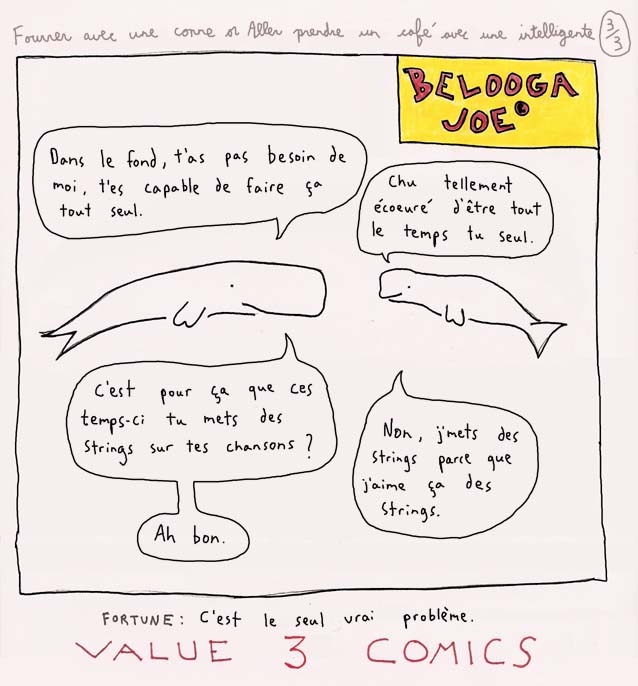 Fourrer avec une conne or Aller prendre un café avec une intelligente 3/3
BELOOGA
JOE
Dans le fond, t'as pas besoin de
moi, t'es capable de faire ça
tout seul.
Chu tellement
écoeuré d'être tout
le temps tu seul.
C'est pour ça que ces
temps-ci tu mets des
strings sur tes chansons ?
Non, j'mets des
strings parce que
j'aime ça des
strings.
Ah bon.
FORTUNE: C'est le seul vrai problème.
VALUE 3 COMICS